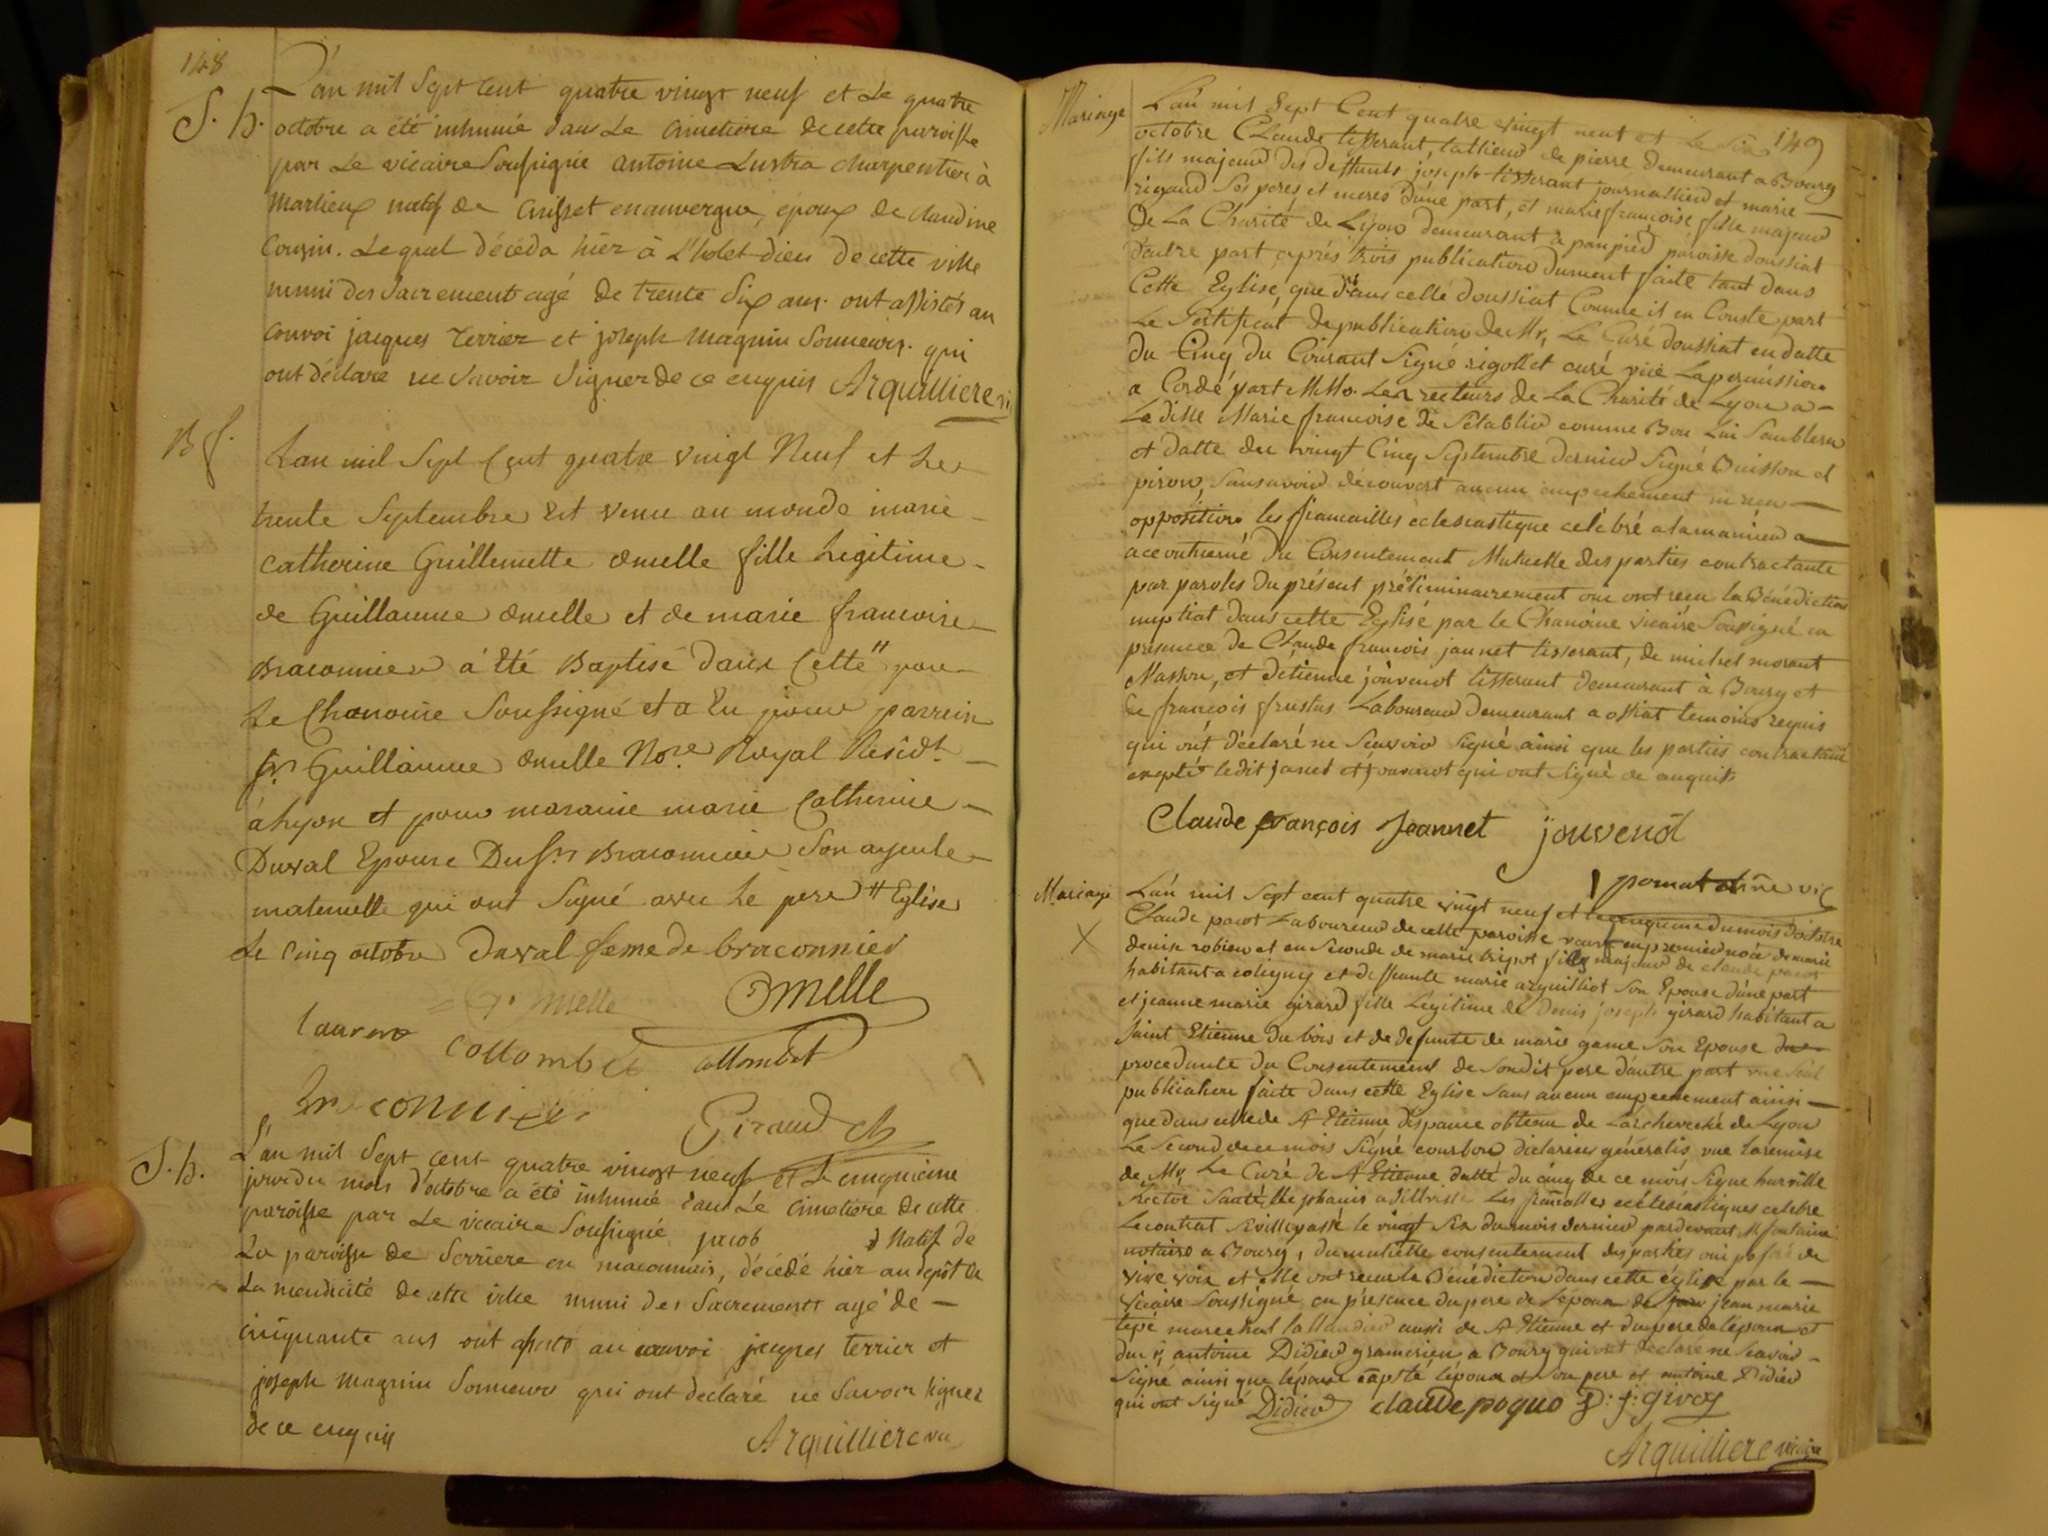 148
S. h.
L'an mil Sept cent quatre vingt neuf et Le quatre
octobre a été inhumé dans Le Cimetiere de cette paroisse
par Le vicaire Soussigné antoine Lustra charpentier à
Marlieux natif de Cuisset en auvergne, epoux de claudine
Cousin. Le quel décéda hier à L'hotel-dieu de cette ville
muni des Sacrement agé de trente Six ans. ont assistés au
convoi jacques terrier et joseph magnin Sonneurs. qui
ont déclare ne Savoir Signer de ce enquis Arquilliere vi
Bf.
Lan mil Sept Cent quatre vingt Neuf et Le
trente Septembre Est venu au monde marie
Catherine Guillemette omelle fille Legitime
de Guillaume omelle et de marie francoise
Braconnier a Eté Baptisé dans Cette # par
Le Chanoine Soussigné et a Eu pour parrein
Sr. Guillaume omelle Nore. Royal Residt.
à Lyon et pour maraine marie Catherine
Duval Epouse Du Sr. Braconnier Son ayeule
maternelle qui ont Signé avec Le pere # Eglise
Le Cinq octobre Duval feme de braconnier
omelle
omelle
Laurens Collombet Collombet
braconnier
Giraud ch
S. h.
L'an mil Sept cent quatre vingt neuf et Le cinquieme
jour du mois d'octobre a été inhumé dans Le Cimetiere de cette
paroisse par Le vicaire Soussigné jacob Natif de
La paroisse de Serriere en maconnais, décédé hier au depôt de
La mendicité de cette ville muni des Sacrements agé de
cinquante ans ont assisté au convoi jacques terrier et
joseph magnin Sonneurs qui ont déclaré ne Savoir Signer
de ce enquis Arquilliere vic
149
Mariage
L'an mil Sept Cent quatre vingt neuf et Le Six
octobre Claude tisserant, tallieur de pierre demeurant a Bourg
fils majeur des deffunts joseph tisserant journallier et marie
rigaud Ses peres et meres d'une part, et marie françoise fille majeur
de La Charité de Lyon demeurant à panpied paroisse doussiat
d'autre part après trois publication dument faite tant dans
Cette Eglise, que dans celle doussiat Comme il en Conste part
Le Sertificat de publication de Mr, Le Curé doussiat en datte
du Cinq du Courant Signé rigollet curé vue La permission
a Cordé part MMo. Les recteurs de La Charité de Lyon a
La ditte Marie françoise de S'établir comme Bon Lui Semblera
et datte du vingt Cinq Septembre dernier Signé Buisson et
piron, Sans avoir découvert aucun empechement ni
opposition les fiancailles eclesiastique celebré a la maniere
accoutumé du Consentement Mutuelle des parties contractante
par paroles du présent préliminairement ont recu la Bénédiction
nuptial dans cette Eglise par le Chanoine vicaire Soussigné en
presence de Claude francois jannet tisserant, de michel morant
Masson, et detienne jouvenot tisserant demeurant à Bourg et
de francois frustus Laboureur demeurant a ossiat temoins requis
qui ont déclaré ne Scavoir Signé ainsi que les parties contractante
excepté ledit janet et jouvenot qui ont Signé de enquis
Claude françois Jeannet jouvenot
Mariage
X
L'an mil Sept cent quatre vingt neuf et le cinquieme du mois d'octobre
Claude pacot Laboureur de cette paroisse veuf en premiere noce de marie
denise robien et en Seconde de marie tripot fils majeur de claude pacot
habitant a coligny et deffunte marie arguilliot Son Epouse d'une part
et jeanne marie girard fille Légitime de Denis joseph girard habitant a
Saint Etienne du bois et de defunte de marie game Son Epouse
procedante du Consentement de Sondit pere d'autre part une Seul
publication faite dans cette Eglise Sans aucun empechement ainsi
que dans celle de St Etienne dispance obtenu de Larcheveché de Lyon
Le Second de ce mois Signé courbon vue la remise
de Mr Le Curé de St Etienne datté du cinq de ce mois Signe
Les fiancailles ecclésiastiques celebre
Le contrat Civille passé le vingt Six du mois dernier pardevant M fontaine
notaire a Bourg, du mutuelle consentement des parties
vive voix et elle ont recu la Bénédiction dans cette église par le
Vicaire Soussigné en présence du pere de l'epoux de jean marie
tepe marechal taillandier aussi de St Etienne et du pere de l'epoux et
du Sr, antoine Didier a Bourg qui ont déclaré ne Scavoir
Signé ainsi que l'épouse excepté l'époux et Son pere et antoine Didier
qui ont Signé Didier claude poquo D. j. girod
Arquilliere vicaire